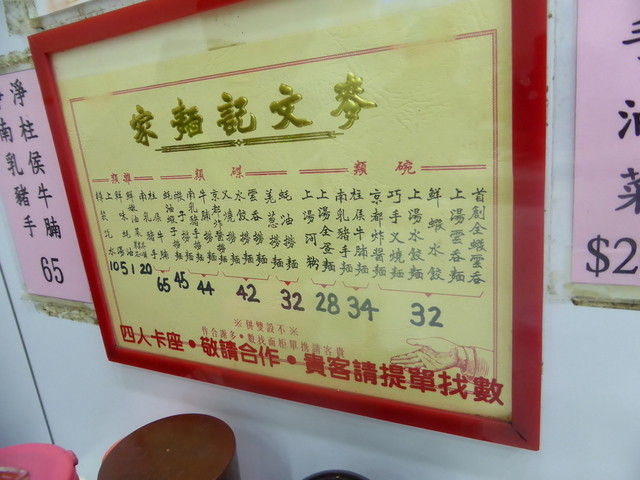 麥文記麵家
碗類
首創全蝦雲呑
上湯雲呑麵
鮮蝦水餃
上湯水餃麵
巧手叉燒麵
32
京都炸醬麵
柱侯牛腩麵
南乳豬手麵
34
上湯全蛋麵
上湯河粉
28
碟類
蚝油撈麵
羌葱撈麵
32
雲呑撈麵
水餃撈麵
叉燒撈麵
京都炸醬撈麵
42
牛腩撈麵
南乳豬手撈麵
44
蝦子撈麵
45
蚝油蝦子撈麵
柱侯牛腩
南乳豬手
65
20
51
10
※不設雙併※
貴客請携單柜面找數•多謝合作
四人卡座•敬請合作•貴客請提單找數
淨柱侯牛腩
南乳豬手
65
手
油
菜
$2